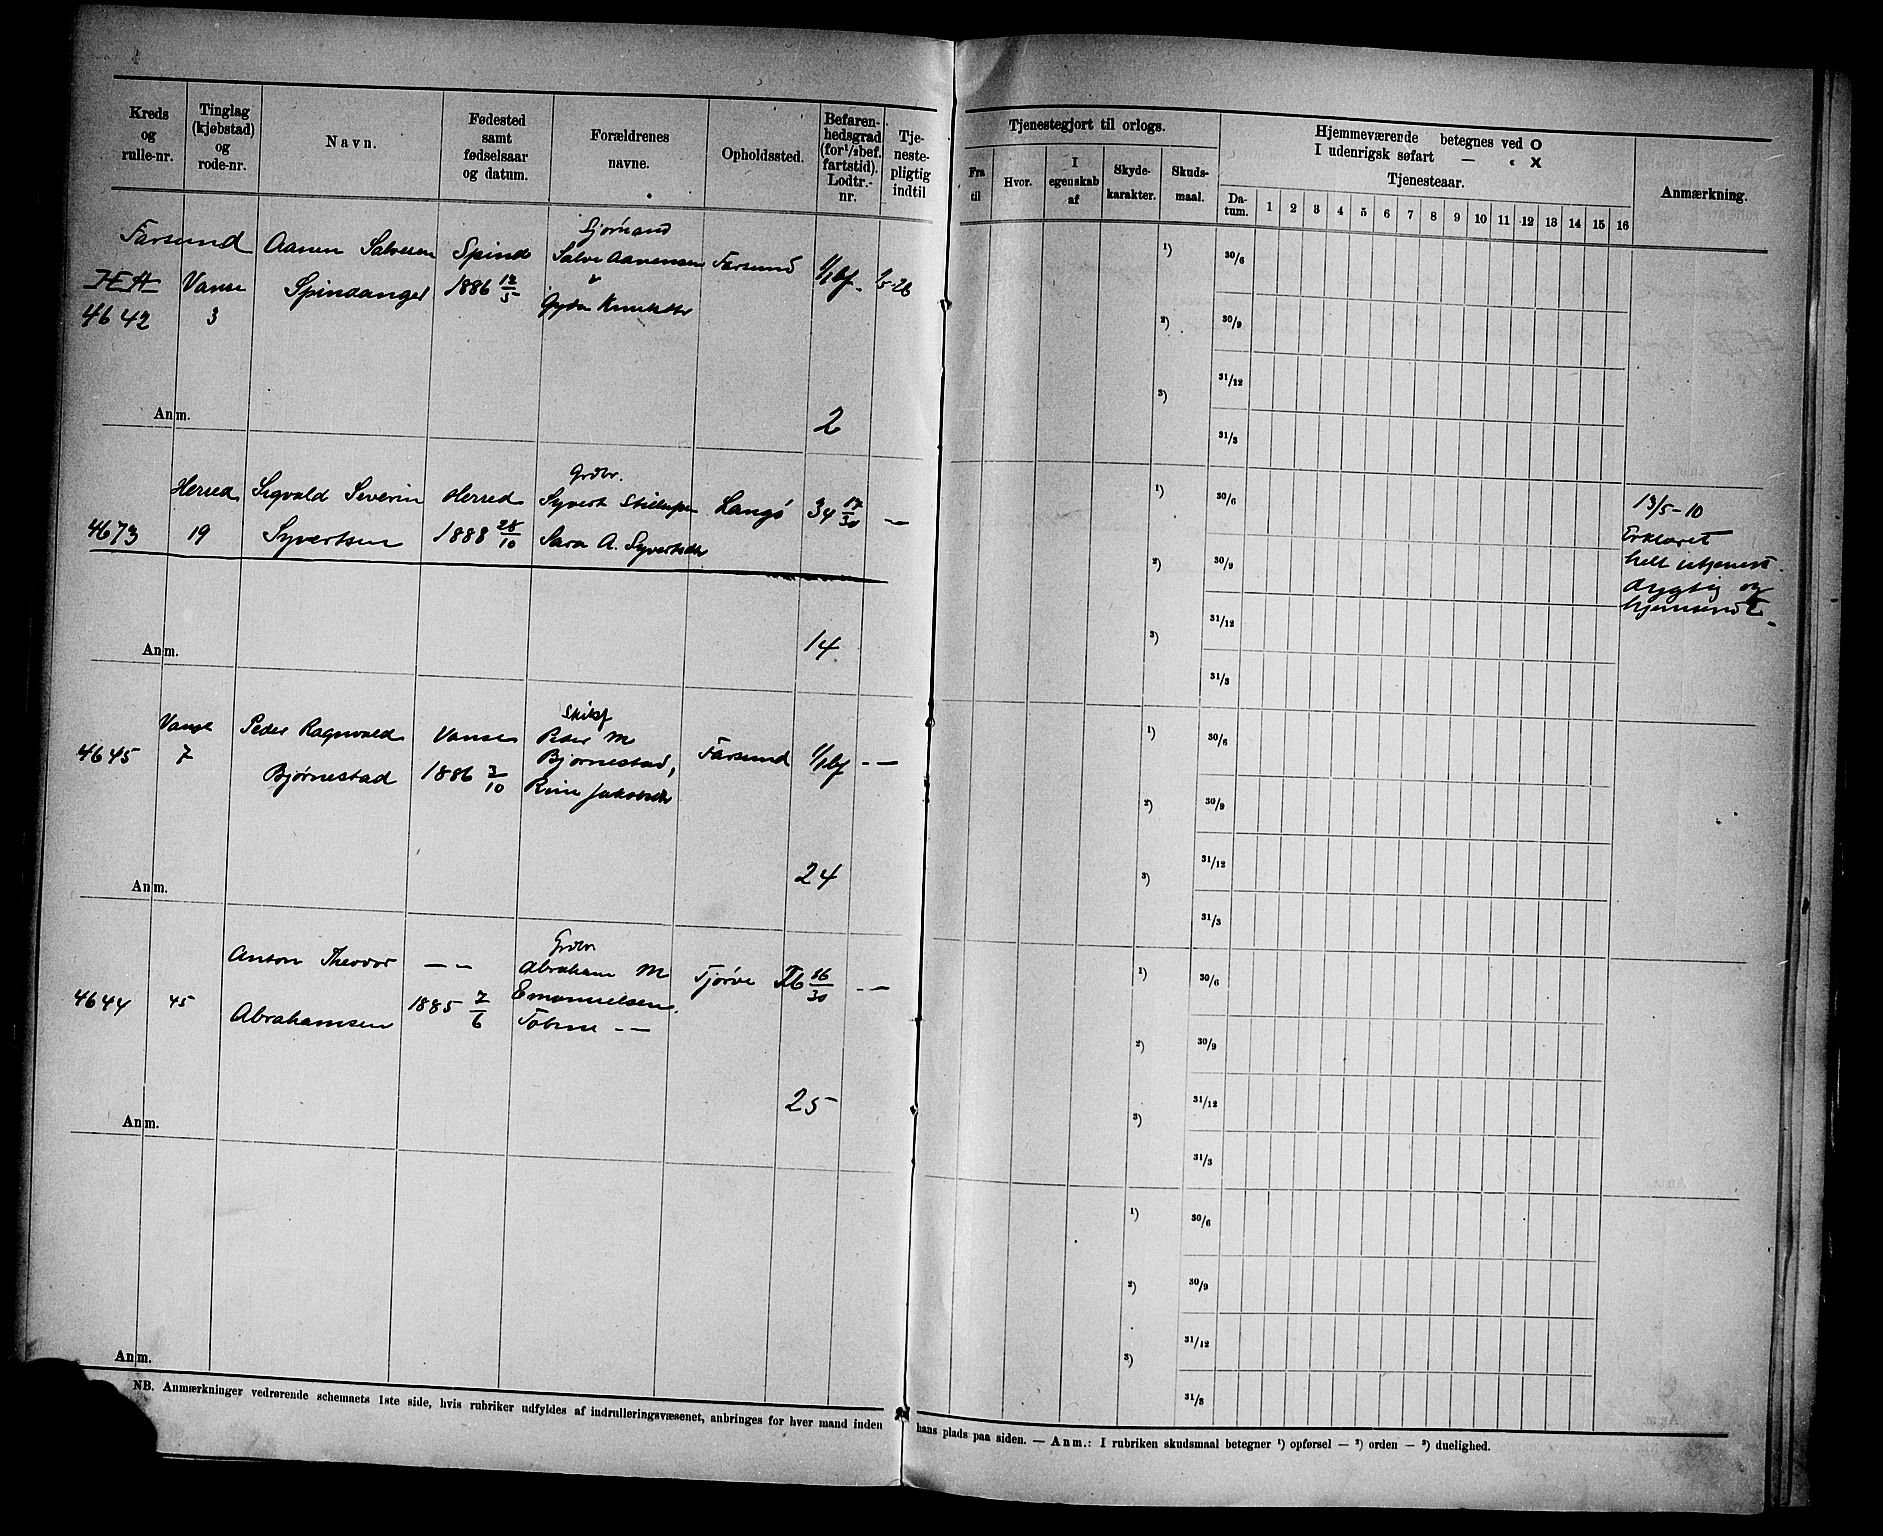 Kreds og rulle-nr.
Tinglag (kjøbstad) og rode-nr.
Navn.
Fødested samt fødselsaar og datum.
Forældrenes navne.
Opholdssted.
Befarenhedsgrad (for 1/2 bef. fartstid). Lodtr.-nr.
Tjenestepligtig indtil
Tjenestegjort til orlogs.
Fra til
Hvor.
I egenskab af
Skydekarakter.
Skudsmaal.
Hjemmeværende betegnes ved O
I udenrigsk søfart — « X
Tjenesteaar.
Datum. 1 2 3 4 5 6 7 8 9 10 11 12 13 14 15 16
Anmærkning.
Farsund
4642
Vanse
3
Aanen Salvesen
Spindanger
Spind
1886 12/5
Salve Aanensen
Farsund
1/1 bf.
2
Anm.
1) 30/6
2) 30/9
31/12
3)
31/3
4673
Herred
19
Sigvald Severin
Syvertsen
Herred
1888 28/10
Grdbr.
Syvert
Sara A. Syvertsdtr
Langø
34 17/30
—
14
Anm.
1) 30/6
2) 30/9
31/12
3)
31/3
13/5-10
Erklæret
helt utjenest-
dygtig og
hjemsendt.
4645
Vanse
7
Peder Ragnvald
Bjørnestad
Vanse
1886 3/10
Peder M
Bjørnestad,
Farsund
1/1 bf
— —
24
Anm.
1) 30/6
2) 30/9
31/12
3)
31/3
4644
45
Anton Theodor
Abrahamsen
— —
1885 7/6
Grdbr
Abraham M
Emanuelsen.
Tobine — —
Tjørve
16/30
— —
25
Anm.
1) 30/6
2) 30/9
31/12
3)
31/3
Anm.
1) 30/6
2) 30/9
31/12
3)
31/3
NB. Anmærkninger vedrørende schemaets 1ste side, hvis rubriker udfyldes af indrulleringsvæsenet, anbringes for hver mand inden hans plads paa siden. — Anm.: I rubriken skudsmaal betegner 1) opførsel — 2) orden — 3) duelighed.